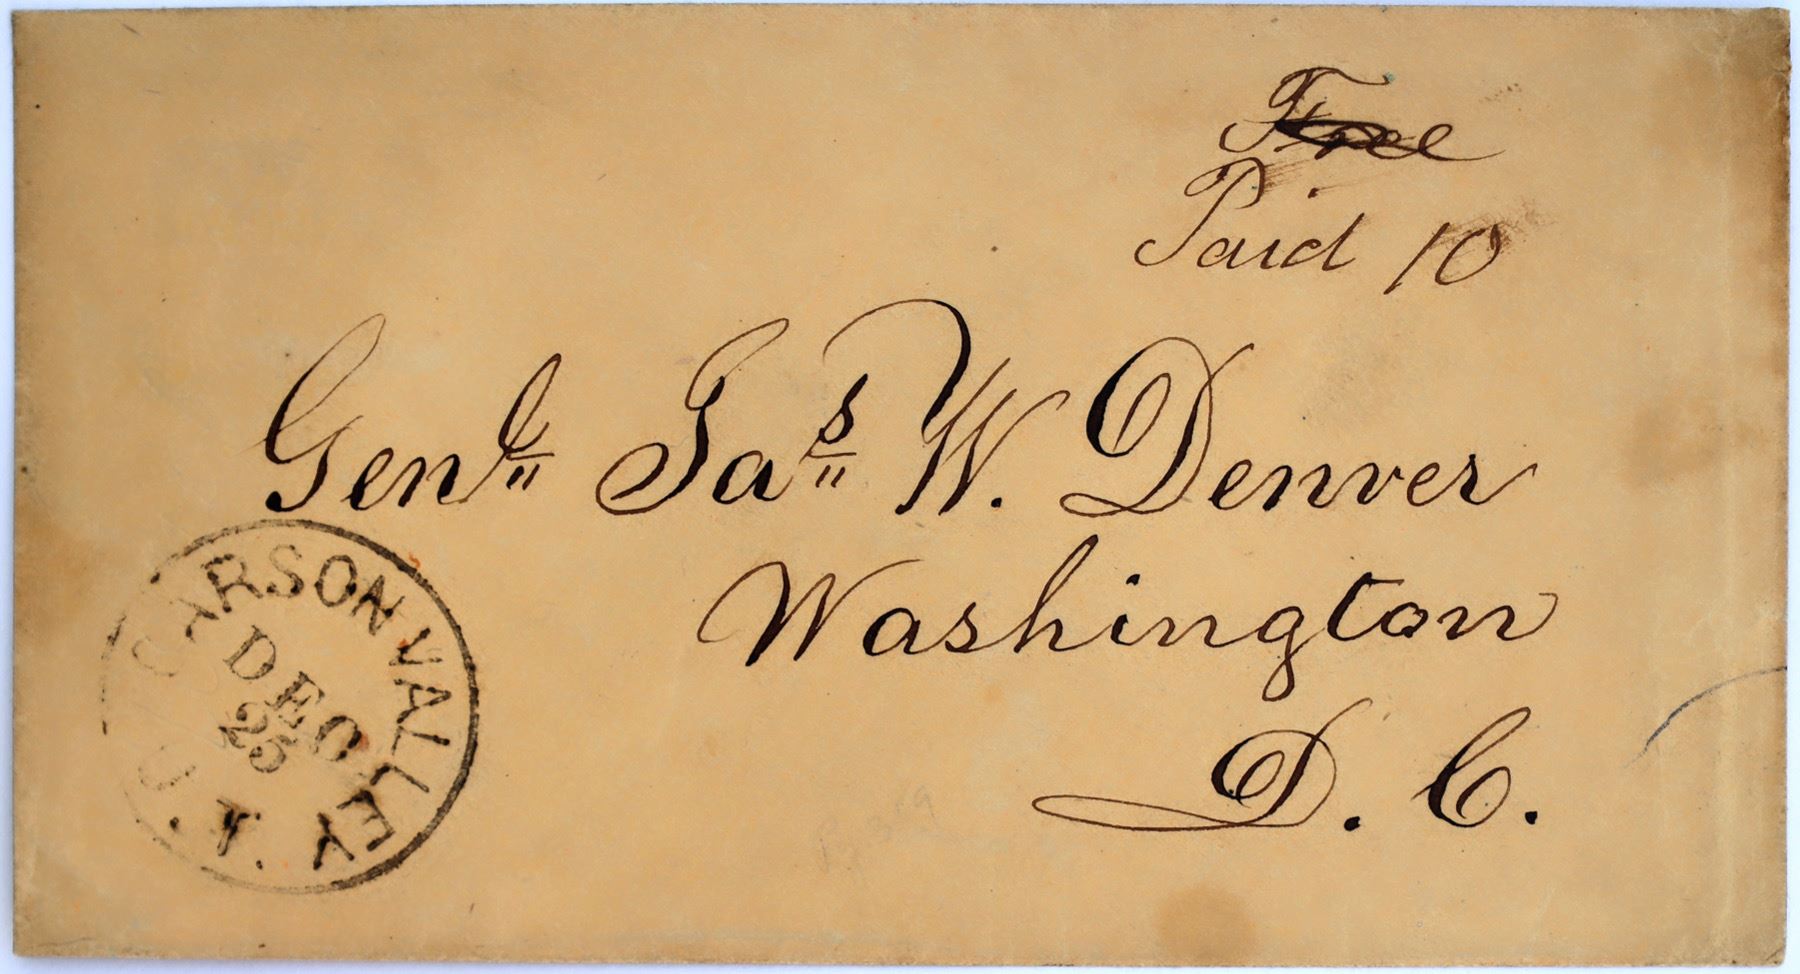 Free
Paid 10
Genl. Jas. W. Denver
Washington
D. C.
CARSON VALLEY
DEC
25
U. T.